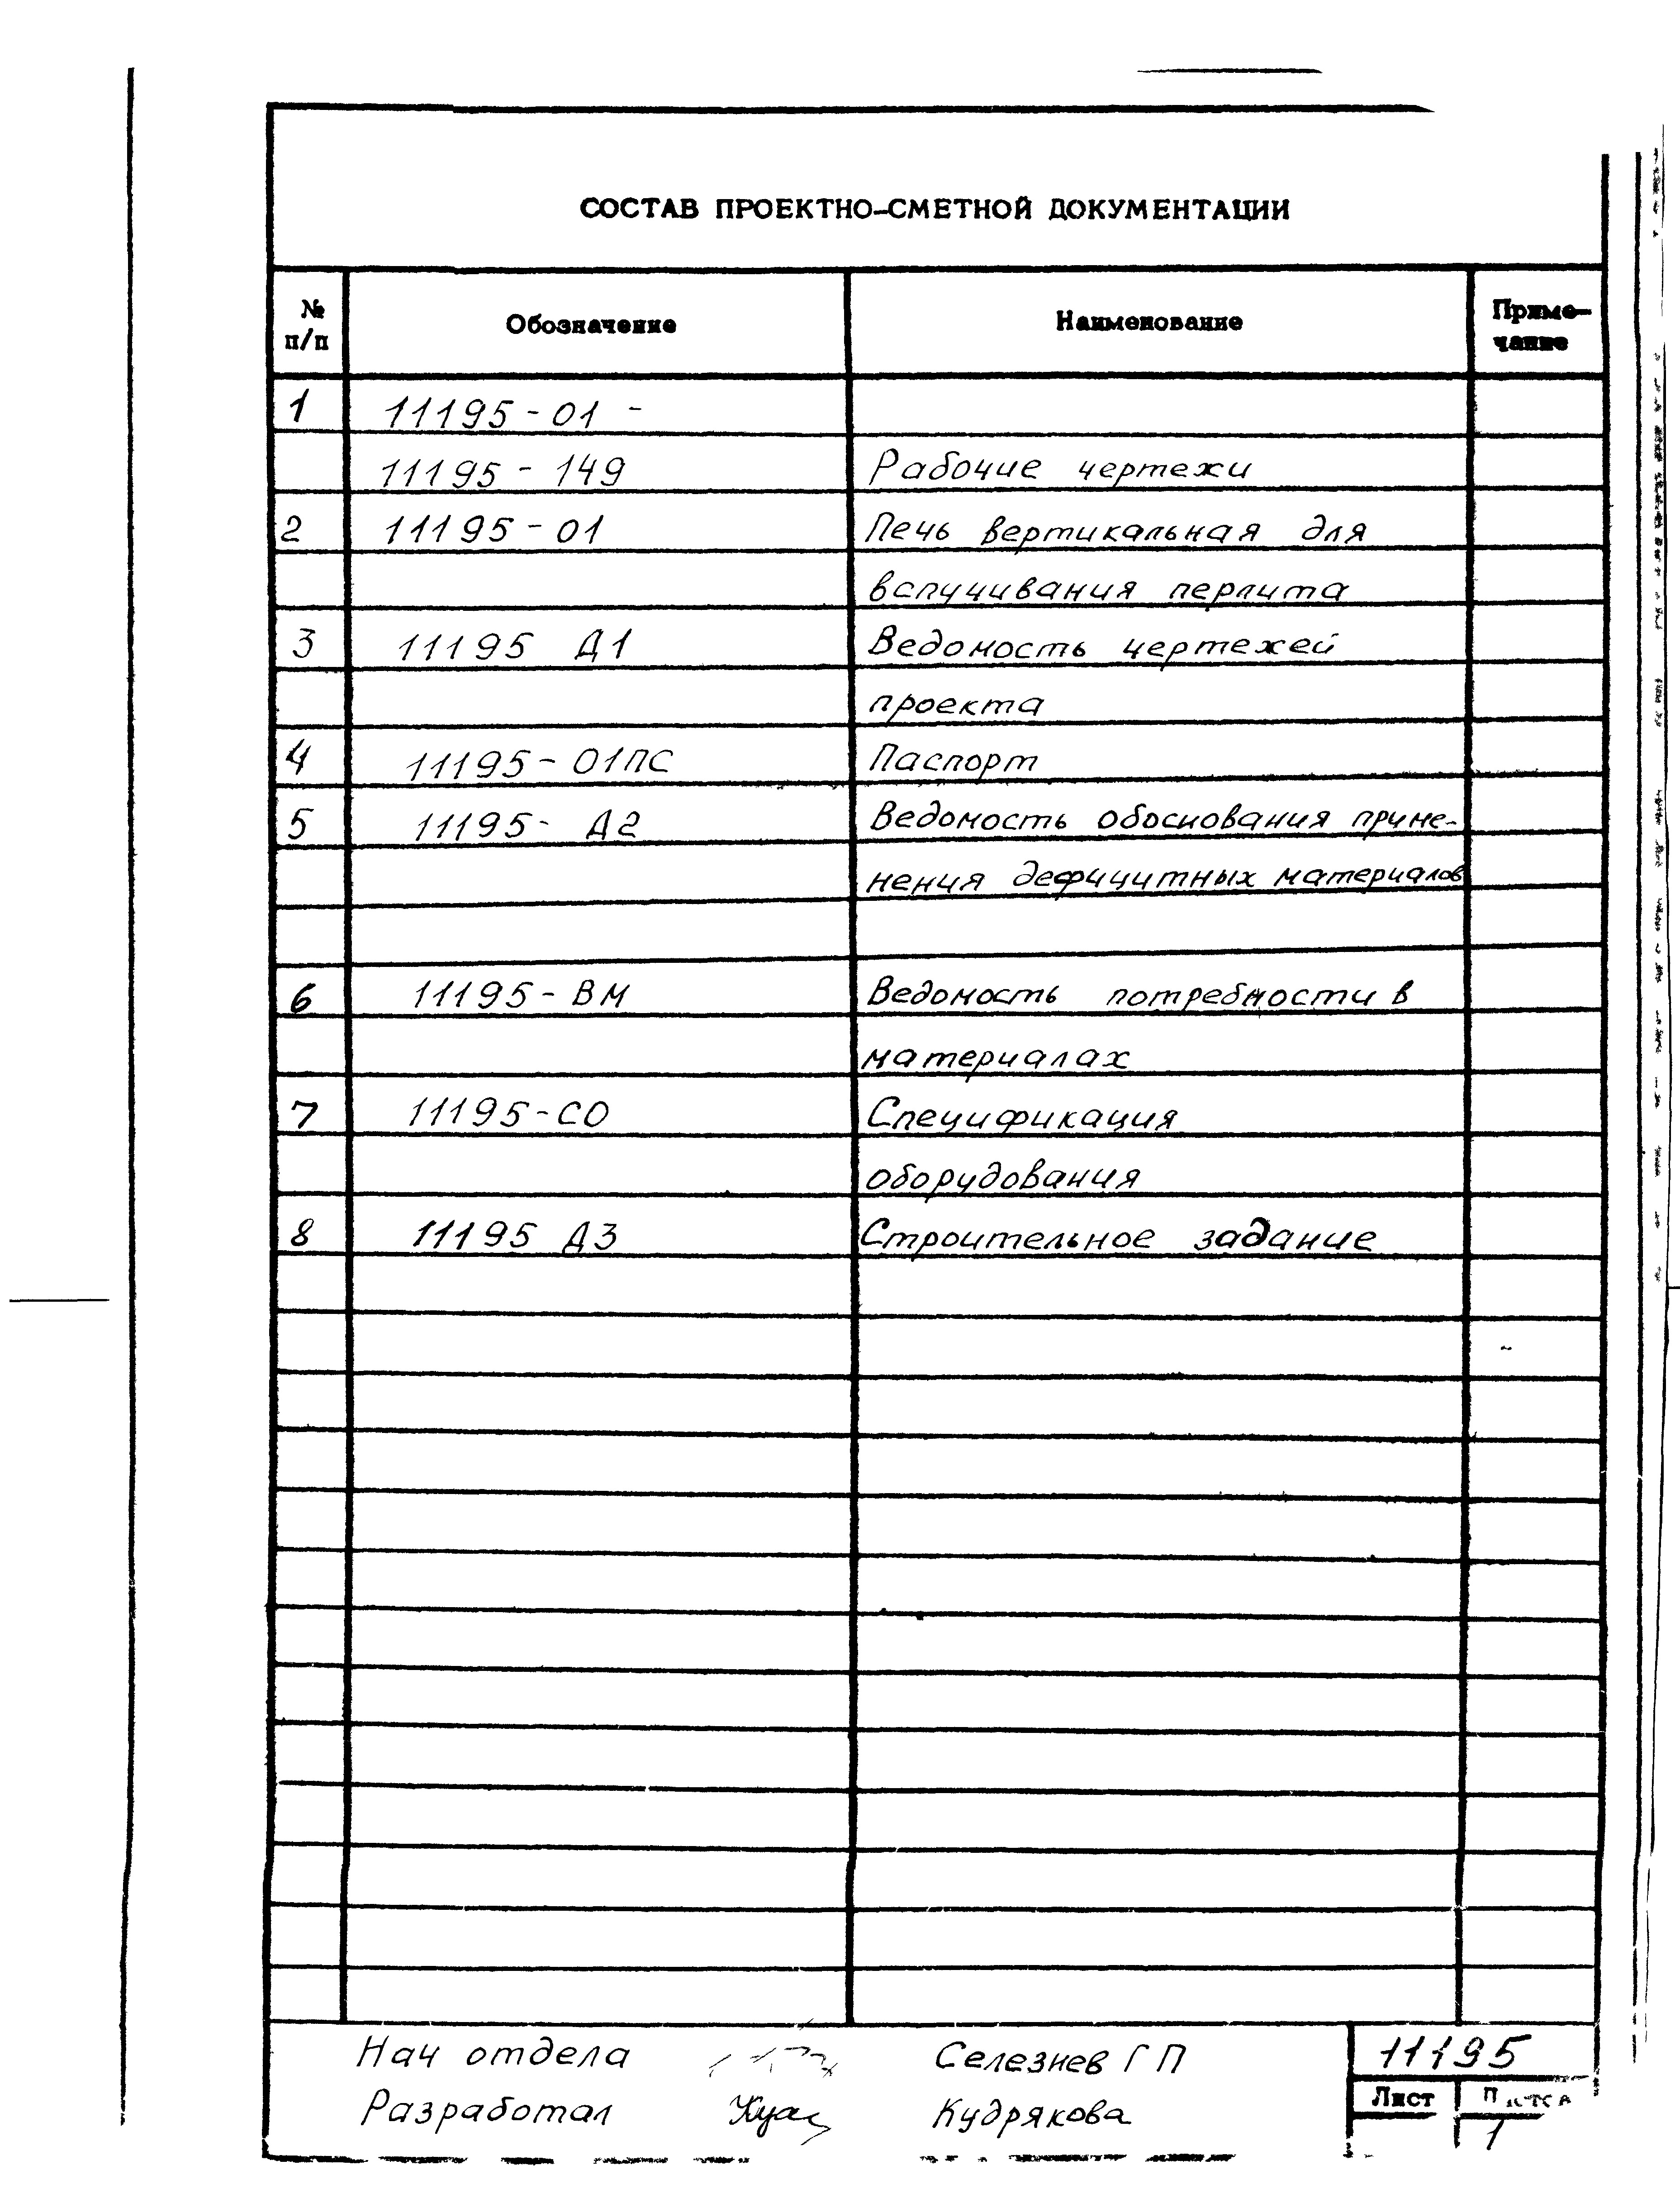 СОСТАВ ПРОЕКТНО-СМЕТНОЙ ДОКУМЕНТАЦИИ
№ п/п Обозначение Наименование Приме-чание
1 11195-01 -
11195-149 Рабочие чертежи
2 11195-01 Печь вертикальная для
вспучивания перлита
3 11195 Д1 Ведомость чертежей
проекта
4 11195-01ПС Паспорт
5 11195- Д2 Ведомость обоснования приме-
нения дефицитных материалов
6 11195-ВМ Ведомость потребности в
материалах
7 11195-СО Спецификация
оборудования
8 11195 Д3 Строительное задание
Нач отдела Селезнев Г П 11195
Разработал Кудрякова Лист
1